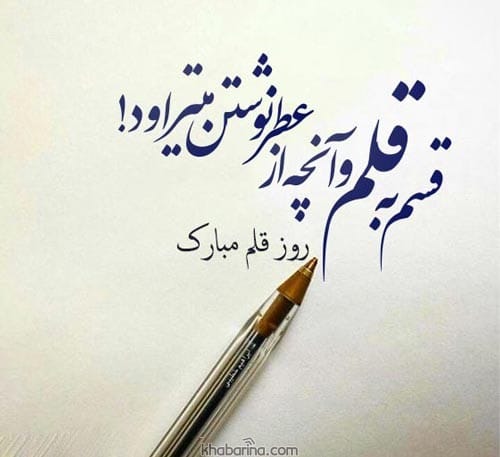 قسم به قلم و آنچه از عطر نوشتن میتراود!
روز قلم مبارک
khabarina.com